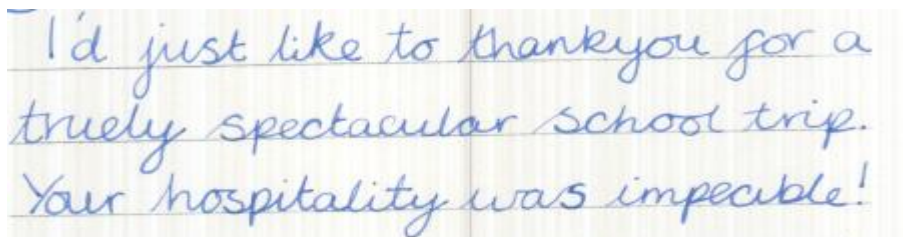 I'd just like to thankyou for a
truely spectacular school trip.
Your hospitality was impecible!